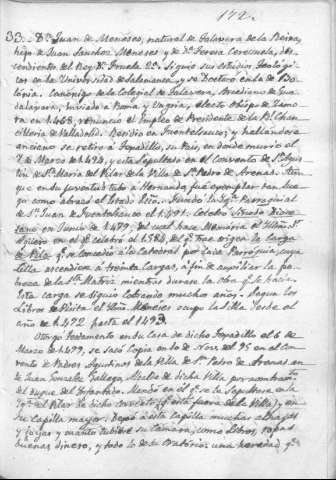 172.
33. Dn. Juan de Meneses, natural de Talavera de la Reina,
hijo de Juan Sanchez Meneses y de Da. Teresa Cerezuela, des-
cendiente del Rey Dn. Fruela 2º. Siguió sus estudios Teológi-
cos en la Universidad de Salamanca, y se Doctoró en la de Bo-
lonia. Canónigo de la Colegial de Talavera, Arcediano de Gua-
dalajara, inviado a Roma y Ungria, electo Obispo de Zamo-
ra en 1.468, renunció el Empleo de Presidente de la Rl. Chan-
cilleria de Valladolid. Residió en Fuentelsauco; y hallandose
anciano se retiró a Topadillo, su Pais, en donde murió el
7 de Marzo de 1493, y está sepultado en el Convento de Sn. Agus-
tin de Sta. Maria del Pilar de la Villa de Sn. Pedro de Arenas. Aun-
que en su juventud tubo a Hernando fué exemplar tan lue-
go como abrazó el Estado Ecco. Fundó la Yga. Parroquial
de Sn. Juan de Fuentelsauco el 1.491. Celebró Sínodo Dioce-
sano en Junio de 1479, del cual hace Memoria el Illmo. Sr.
en el qe. celebró el 1584, del qe. trae origen la Carga
de Pila qe. se concedió a la Catedral por cada Parroquia, cuya
Cilla ascendiera a treinta Cargas, a fin de auxiliar la po-
breza de la Sta. Matriz mientras durase la obra qe. se hacia.
Esta carga se siguió cobrando muchos años. Segun los
Libros de Visita el Illmo. Meneses ocupó la Silla desde el
año de 1472 hasta el 1493.
Otorgó testamento en su Casa de dicho Topadillo el 6 de
Marzo de 1493, se sacó Copia en 10 de Nov. del 95 en el Con-
vento de Padres Agustinos de la Villa de Sn. Pedro de Arenas en
de Juan Gonzalez Gallego, Alcalde de dicha Villa por
del duque del Infantado. Mandó en él qe. se le Sepultara en la
Yga. del Pilar de dicho Convento (qe. está fuera de la Villa), en
su capilla mayor. Dejó a esta capilla muchas alhajas
y fijas y cuanto tubiere su Cámara; como Libros, ropas
buenas dinero, y todo lo de su Oratorio; una heredad qe.